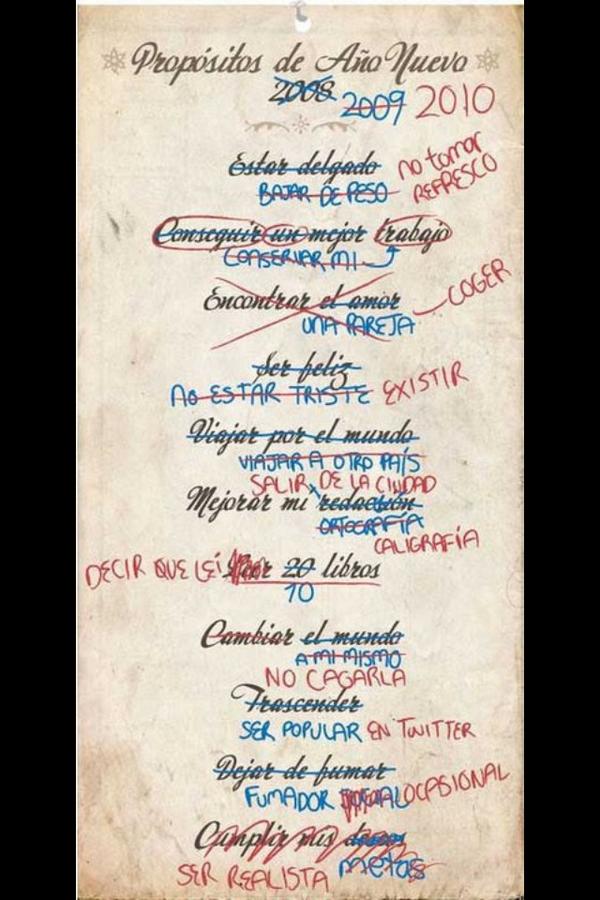 Propósitos de Año Nuevo
2008 2009 2010
Estar delgado no tomar
BAJAR DE PESO REFRESCO
Conseguir un mejor trabajo
CONSERVAR MI
Encontrar el amor COGER
UNA PAREJA
Ser feliz
NO ESTAR TRISTE EXISTIR
Viajar por el mundo
VIAJAR A OTRO PAÍS
SALIR DE LA CIUDAD
Mejorar mi redacción
ORTOGRAFÍA
CALIGRAFÍA
DECIR QUE LEÍ Leer 20 libros
10
Cambiar el mundo
A MI MISMO
NO CAGARLA
Trascender
SER POPULAR EN TWITTER
Dejar de fumar
FUMADOR SOCIAL OCASIONAL
Cumplir mis deseos
SER REALISTA metas